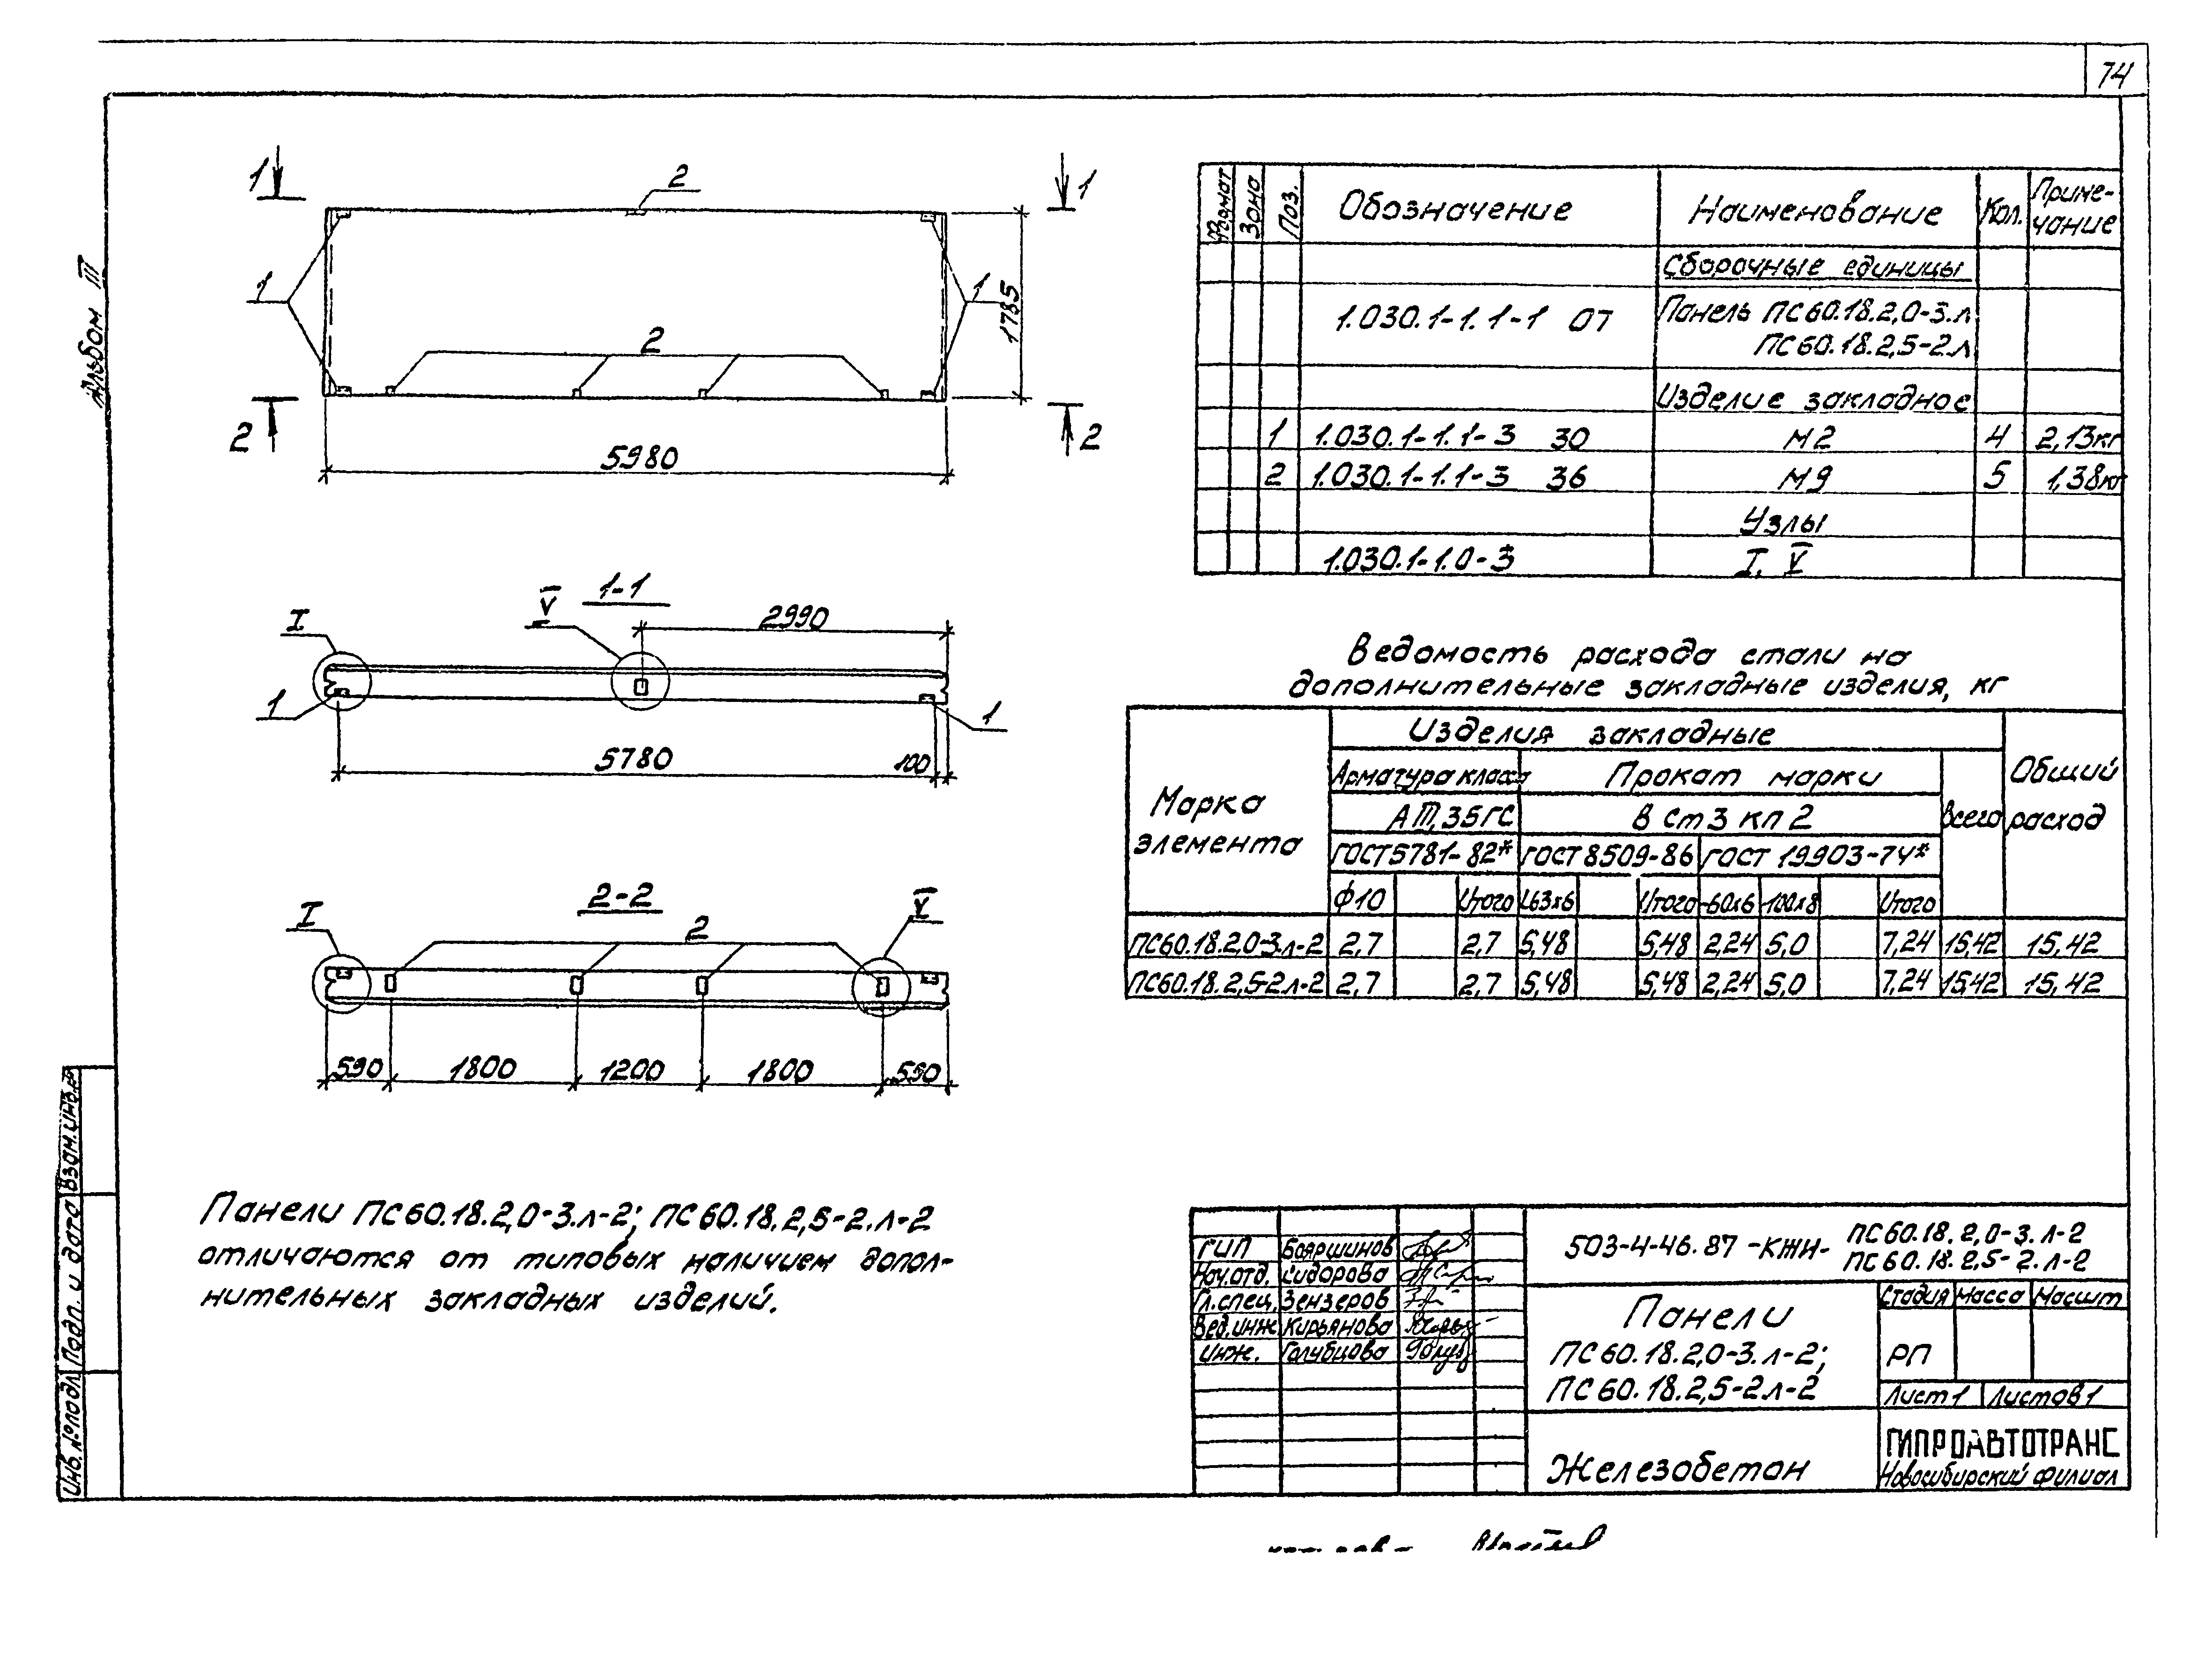 74
Альбом III
1 1
2
1 1
2
1785
2 2
5980
1-1
I V 2990
1 1
5780 100
2-2
I V
2
590 1800 1200 1800 590
Панели ПС60.18.2,0-3.л-2; ПС60.18.2,5-2.л-2
отличаются от типовых наличием допол-
нительных закладных изделий.
Формат Зона Поз. Обозначение Наименование Кол. Приме-
чание
Сборочные единицы
1.030.1-1.1-1 07 Панель ПС60.18.2,0-3.л
ПС60.18.2,5-2.л
Изделие закладное
1 1.030.1-1.1-3 30 М2 4 2,13кг
2 1.030.1-1.1-3 36 М9 5 1,38кг
Узлы
1.030.1-1.0-3 I, V
Ведомость расхода стали на
дополнительные закладные изделия, кг
Марка
элемента
Изделия закладные
Общий
расход
Арматура класса Прокат марки
Всего
АIII, 35ГС ВСт3кп2
ГОСТ5781-82* ГОСТ8509-86 ГОСТ 19903-74*
ф10 Итого L63х6 Итого -60х6 -100х8 Итого
ПС60.18.2,0-3.л-2 2,7 2,7 5,48 5,48 2,24 5,0 7,24 15,42 15,42
ПС60.18.2,5-2.л-2 2,7 2,7 5,48 5,48 2,24 5,0 7,24 15,42 15,42
503-4-46.87-КЖИ- ПС60.18.2,0-3.л-2
ПС60.18.2,5-2.л-2
ГИП Бояршинов
Нач.отд. Сидорова
Гл.спец. Зензеров
Вед.инж Кирьянова
Инж. Голубцова
Панели
ПС60.18.2,0-3.л-2;
ПС60.18.2,5-2л-2
Стадия Масса Масшт
РП
Лист 1 Листов 1
Железобетон
ГИПРОАВТОТРАНС
Новосибирский филиал
Взам.инв.№
Подп. и дата
Инв.№подл